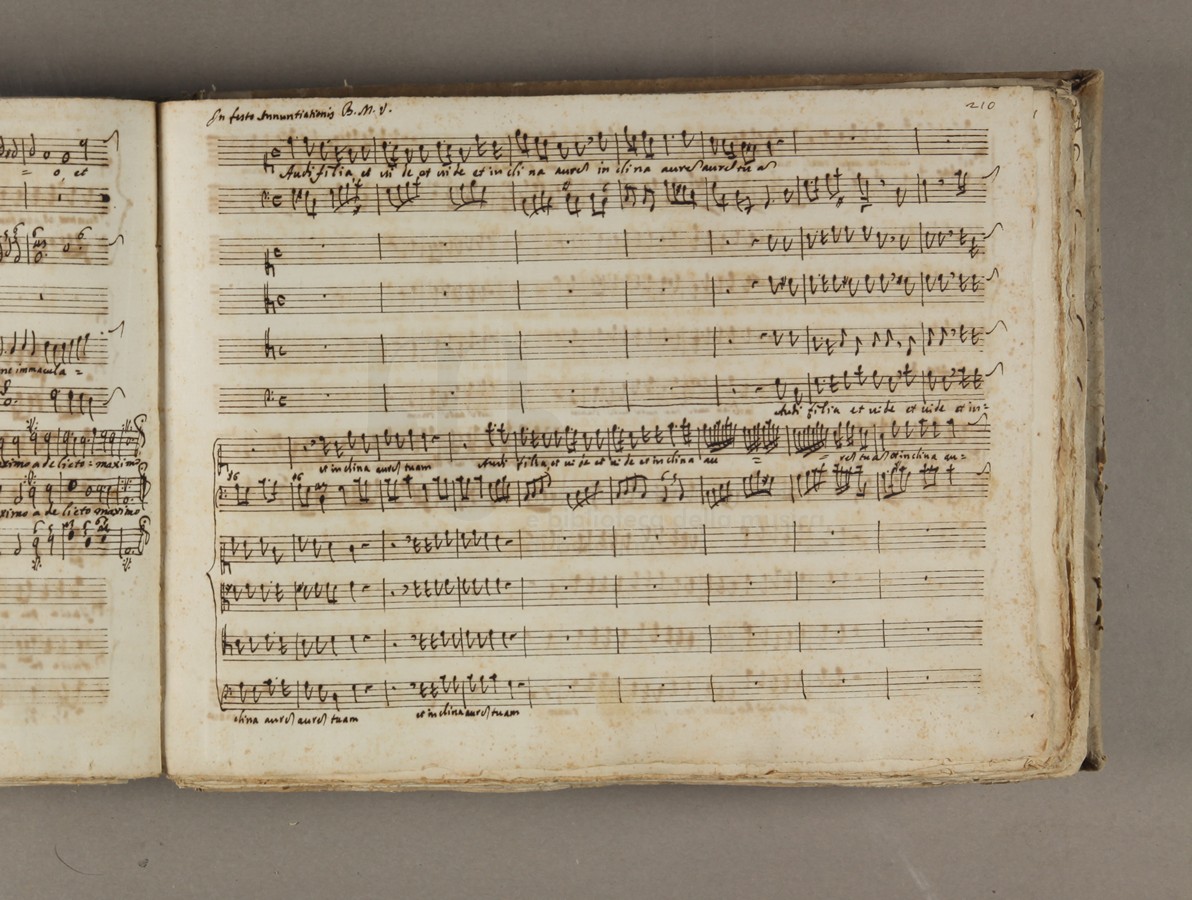 210
In festo Annuntiationis B. M. V.
= o et
Audi filia et vi de et vide et in cli na aurem in clina aurem aurem tu a
ne immacula =
Audi filia et vide et vide et in=
et inclina aurem tuam Audi filia et vi de et vi de et inclina au = = rem tuam et inclina au=
ximo a delicto = maximo
36 36
ximo a delicto maximo
biblioteca della musica
clina aurem aurem tuam et inclina aurem tuam